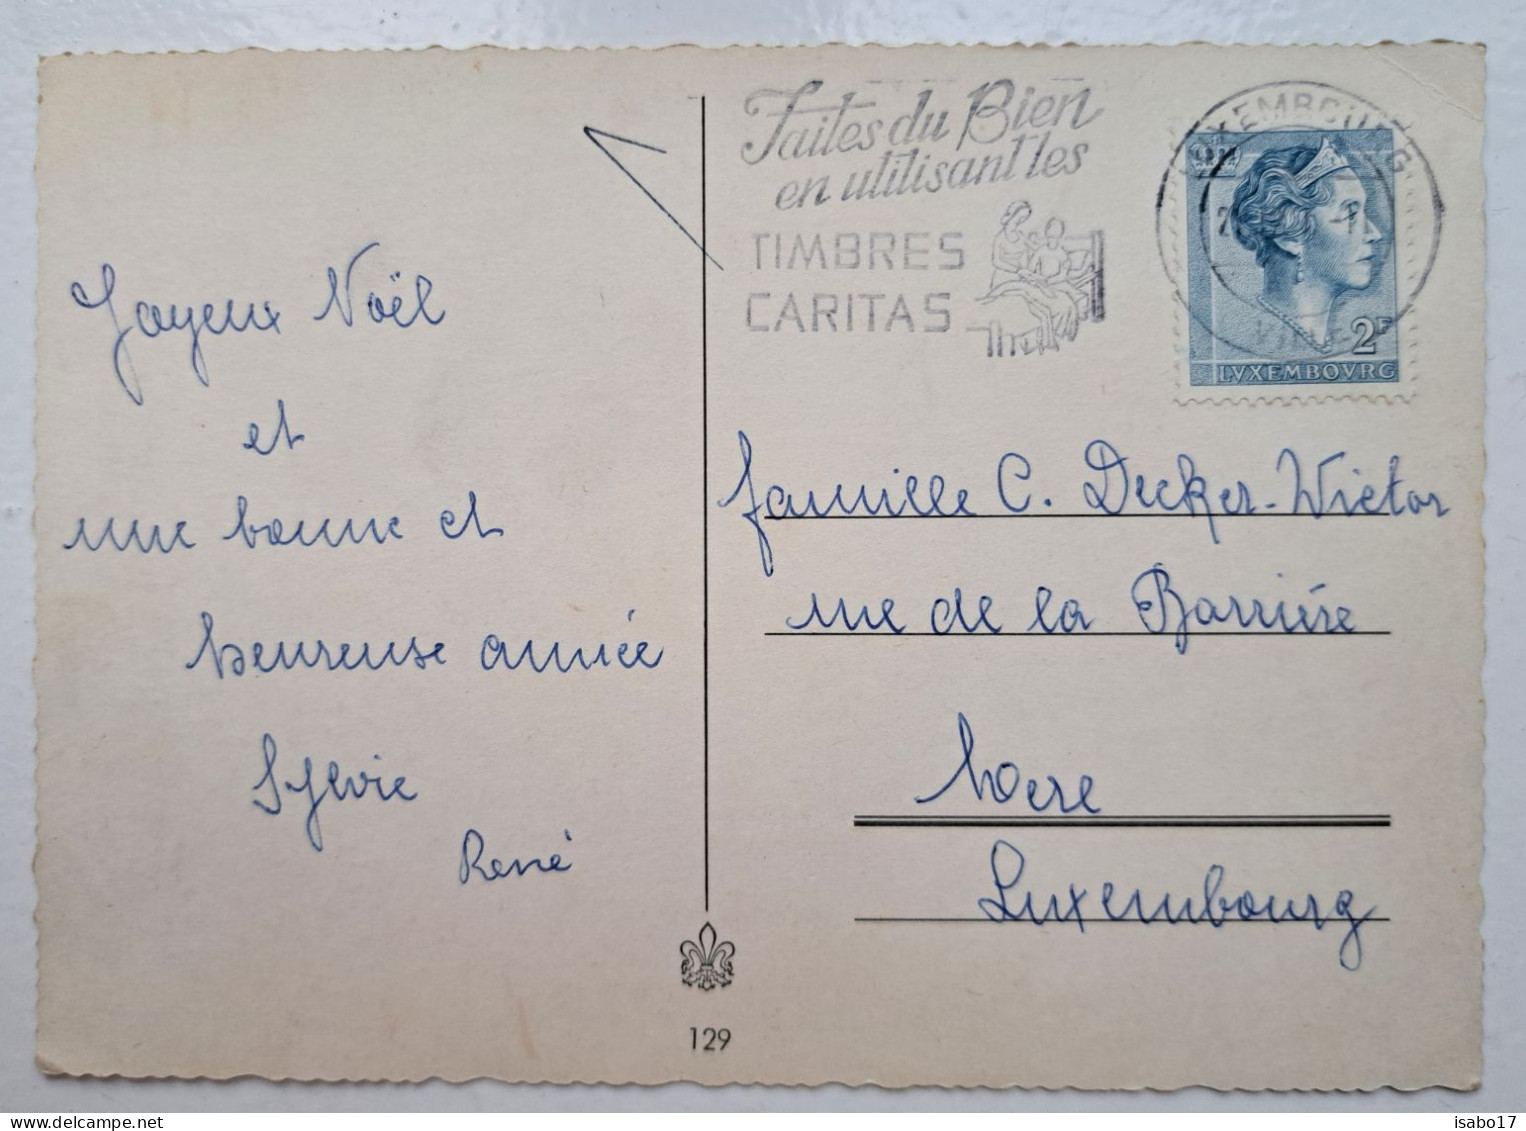 Joyeux Noël
et
une bonne et
heureuse année
Sylvie
René
129
Faites du Bien
en utilisant les
TIMBRES
CARITAS
LUXEMBOURG
VILLE
2F
LVXEMBOVRG
famille C. Decker-Wictor
rue de la Barrière
Luxembourg
isabo17